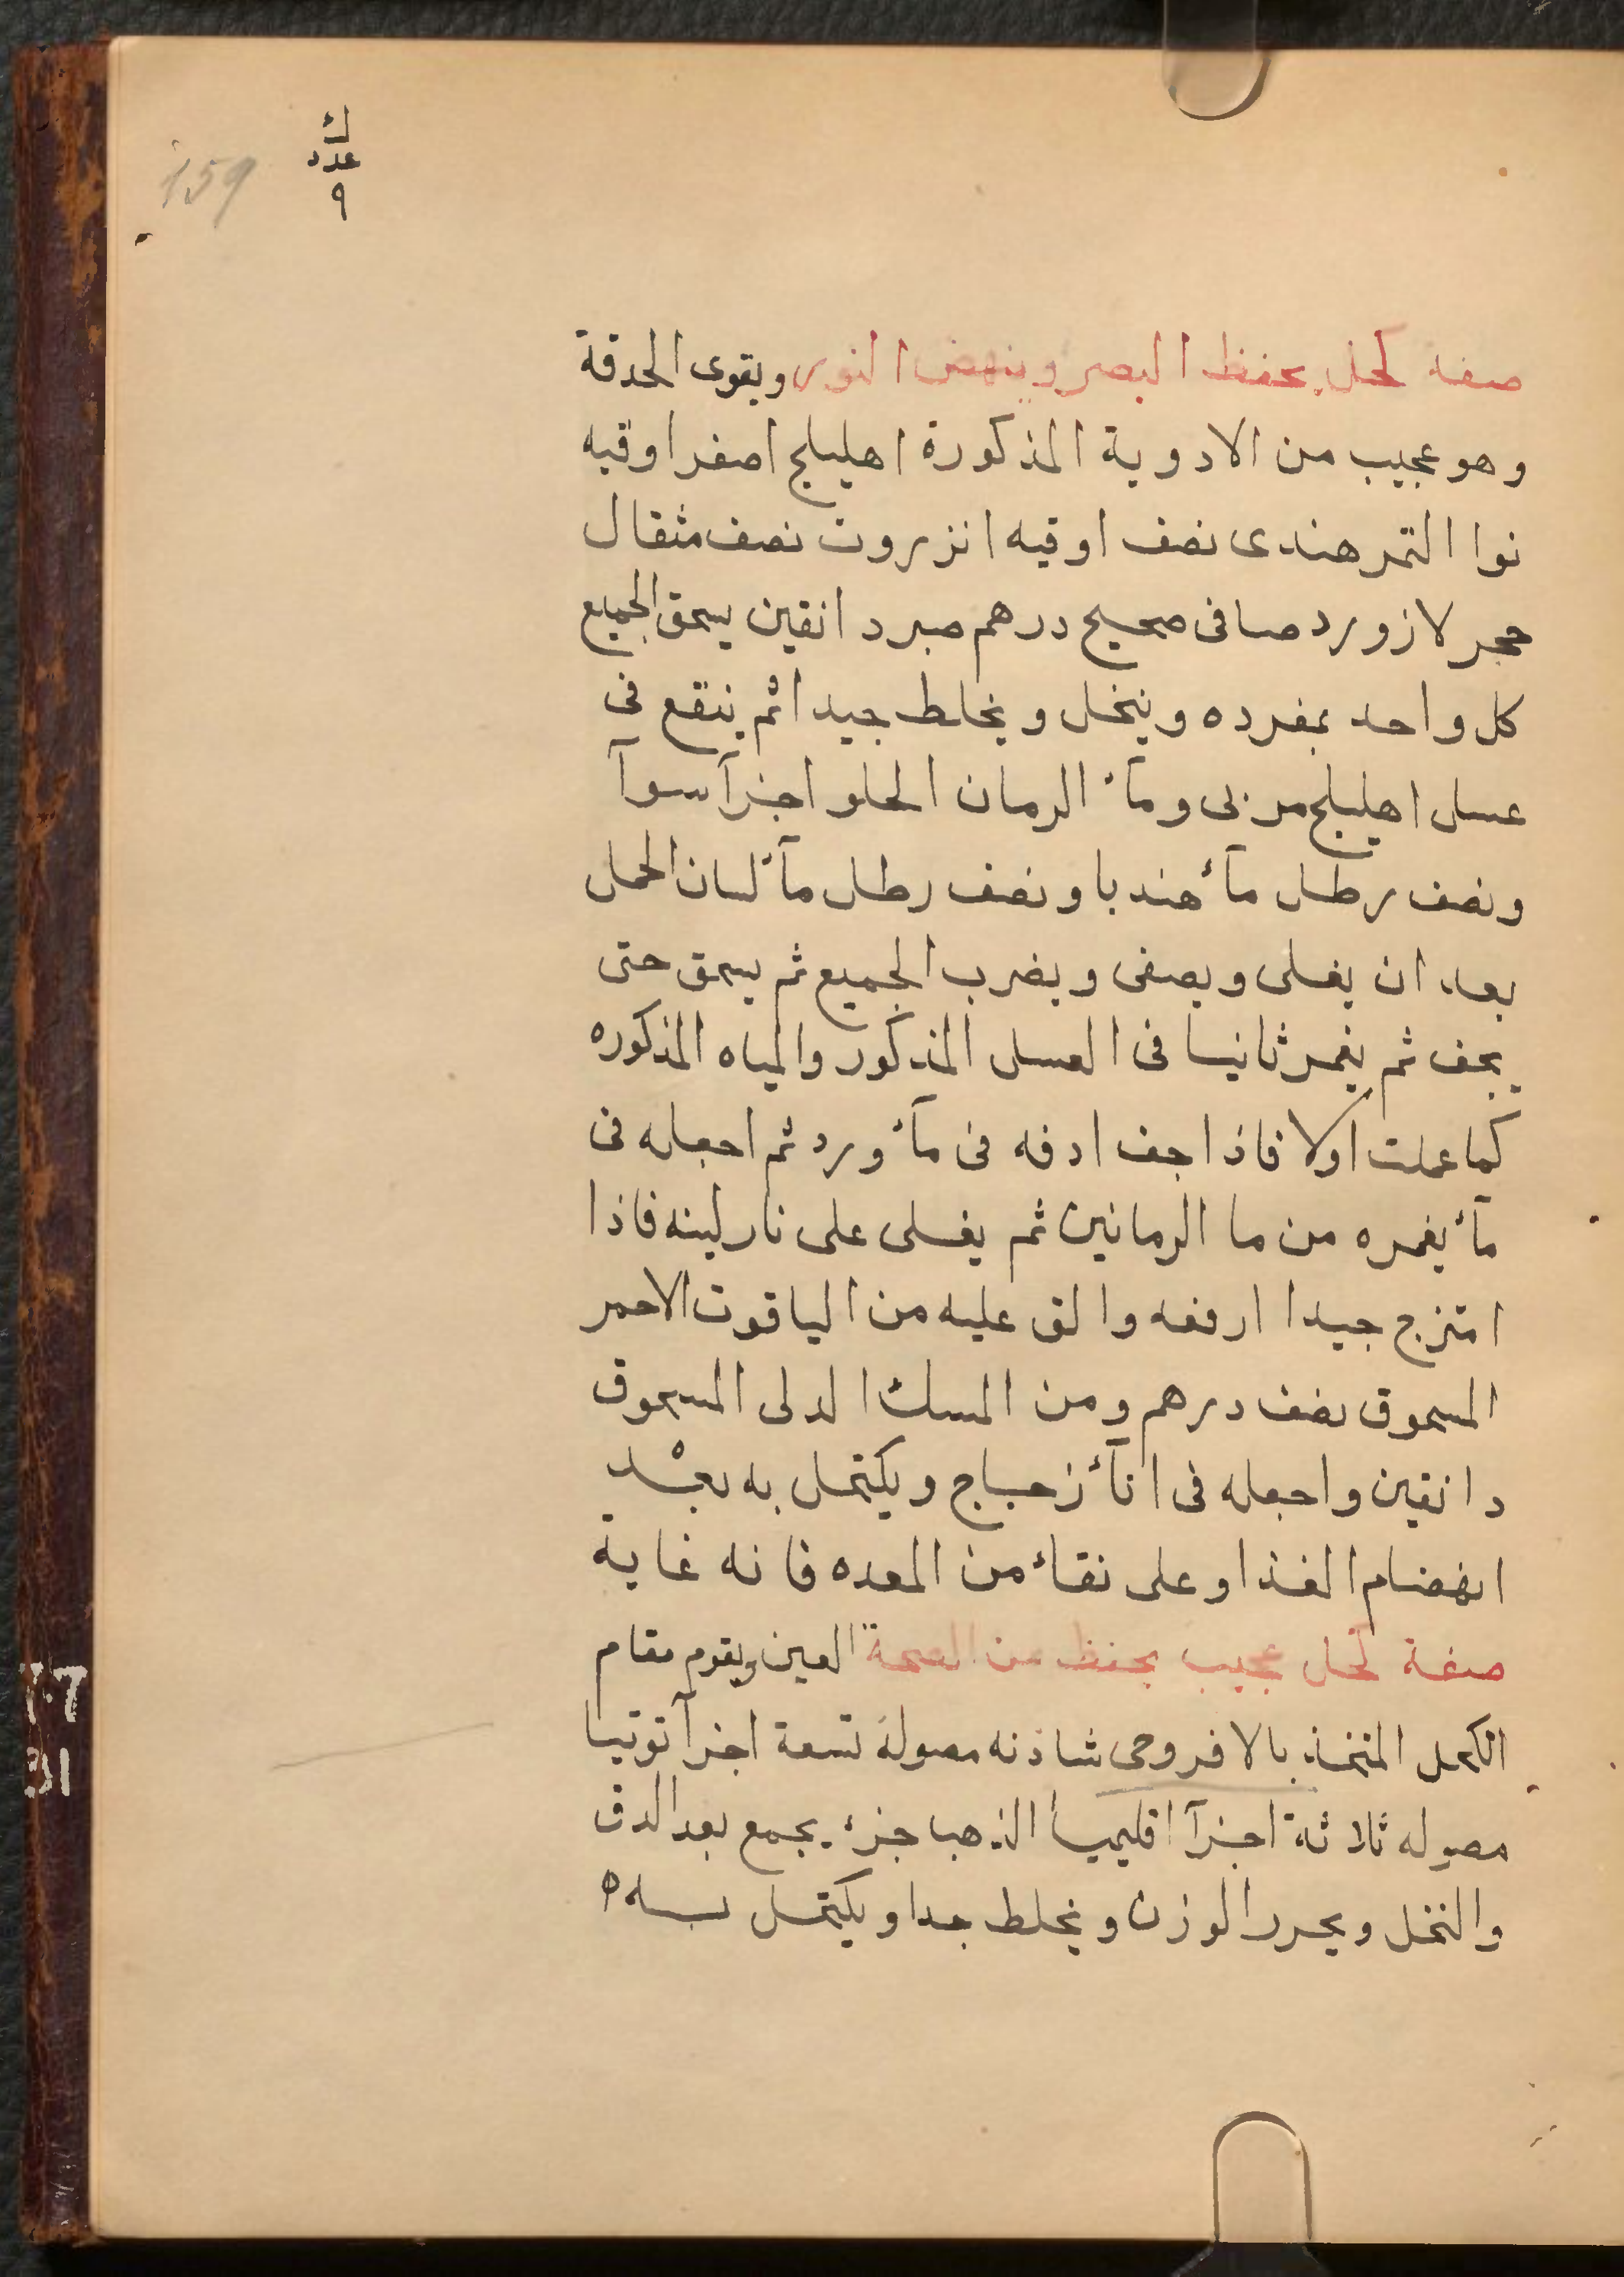 ك
عدد
٩
159
صفة كحل يحفظ البصر وينهض النور ويقوى الحدقة
وهو عجيب من الادوية المذكورة اهليلج اصفر اوقيه
نوا التمر هندى نصف اوقيه انزروت نصف مثقال
حجر لازورد صافى صحيح درهم صبر دانقين يسحق الجميع
كل واحد بمفرده وينخل ويخلط جيدا ثم ينقع فى
عسل اهليلج مربى ومآء الرمان الحلو اجزآ سوآ
ونصف رطل مآء هندبا ونصف رطل مآء لسان الحمل
بعد ان يغلى ويصفى ويضرب الجميع ثم يسحق حتى
يجف ثم يغمر ثانيا فى العسل المذكور والمياه المذكوره
كما عملت اولا فاذا جف ادفه فى مآء ورد ثم اجعله فى
مآء يغمره من ما الرمانين ثم يغلى على نار لينه فاذا
امتزج جيدا ارفعه والق عليه من الياقوت الاحمر
المسحوق نصف درهم ومن المسك المسحوق
دانقين واجعله فى انآء زجاج ويكتحل به بعد
انهضام الغذا وعلى نقاء من المعده فانه غاية
صفة كحل عجيب يحفظ من الصحة العين ويقوم مقام
الكحل المتخذ بالافروحى شاذنه مصولة تسعة اجزآ توتيا
مصوله ثلاثة اجزآ اقليميا الذهبا جزء يجمع بعد الدق
والنخل ويحرر الوزن ويخلط جدا ويكتحل به ه
7.7
31